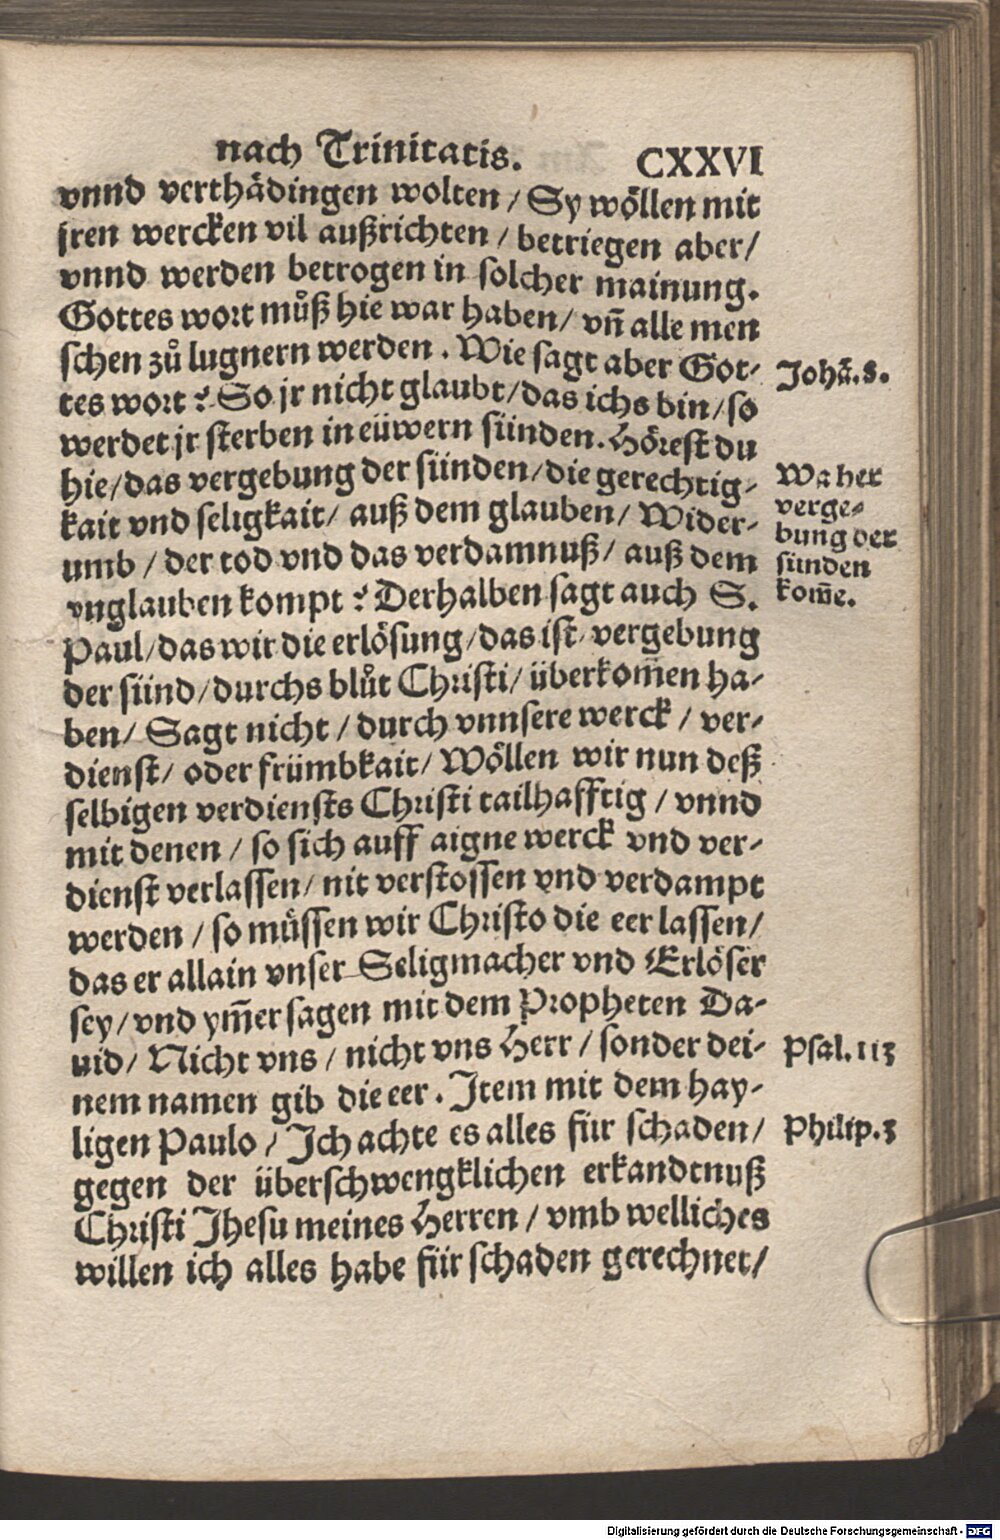 nach Trinitatis.
CXXVI
vnnd verthädingen wolten / Sy wöllen mit
jren wercken vil außrichten / betriegen aber /
vnnd werden betrogen in solcher mainung.
Gottes wort můß hie war haben / vñ alle men
schen zů lugnern werden . Wie sagt aber Got-
tes wort ? So jr nicht glaubt / das ichs bin / so
werdet jr sterben in eüwern sünden. Hörest du
hie / das vergebung der sünden / die gerechtig-
kait vnd seligkait / auß dem glauben / Wider-
umb / der tod vnd das verdamnuß / auß dem
vnglauben kompt ? Derhalben sagt auch S.
Paul / das wir die erlösung / das ist / vergebung
der sünd / durchs blůt Christi / überkom̃en ha-
ben / Sagt nicht / durch vnnsere werck / ver-
dienst / oder frümbkait / Wöllen wir nun deß
selbigen verdiensts Christi tailhafftig / vnnd
mit denen / so sich auff aigne werck vnd ver-
dienst verlassen / nit verstossen vnd verdampt
werden / so müssen wir Christo die eer lassen /
das er allain vnser Seligmacher vnd Erlöser
sey / vnd ym̃er sagen mit dem Propheten Da-
uid / Nicht vns / nicht vns Herr / sonder dei-
nem namen gib die eer . Item mit dem hay-
ligen Paulo / Ich achte es alles für schaden /
gegen der überschwengklichen erkandtnuß
Christi Jhesu meines Herren / vmb welliches
willen ich alles habe für schaden gerechnet /
Johã. 8.
Wa her
verge-
bung der
sünden
kom̃e.
Psal. 113
Philip. 3
Digitalisierung gefördert durch die Deutsche Forschungsgemeinschaft - DFG